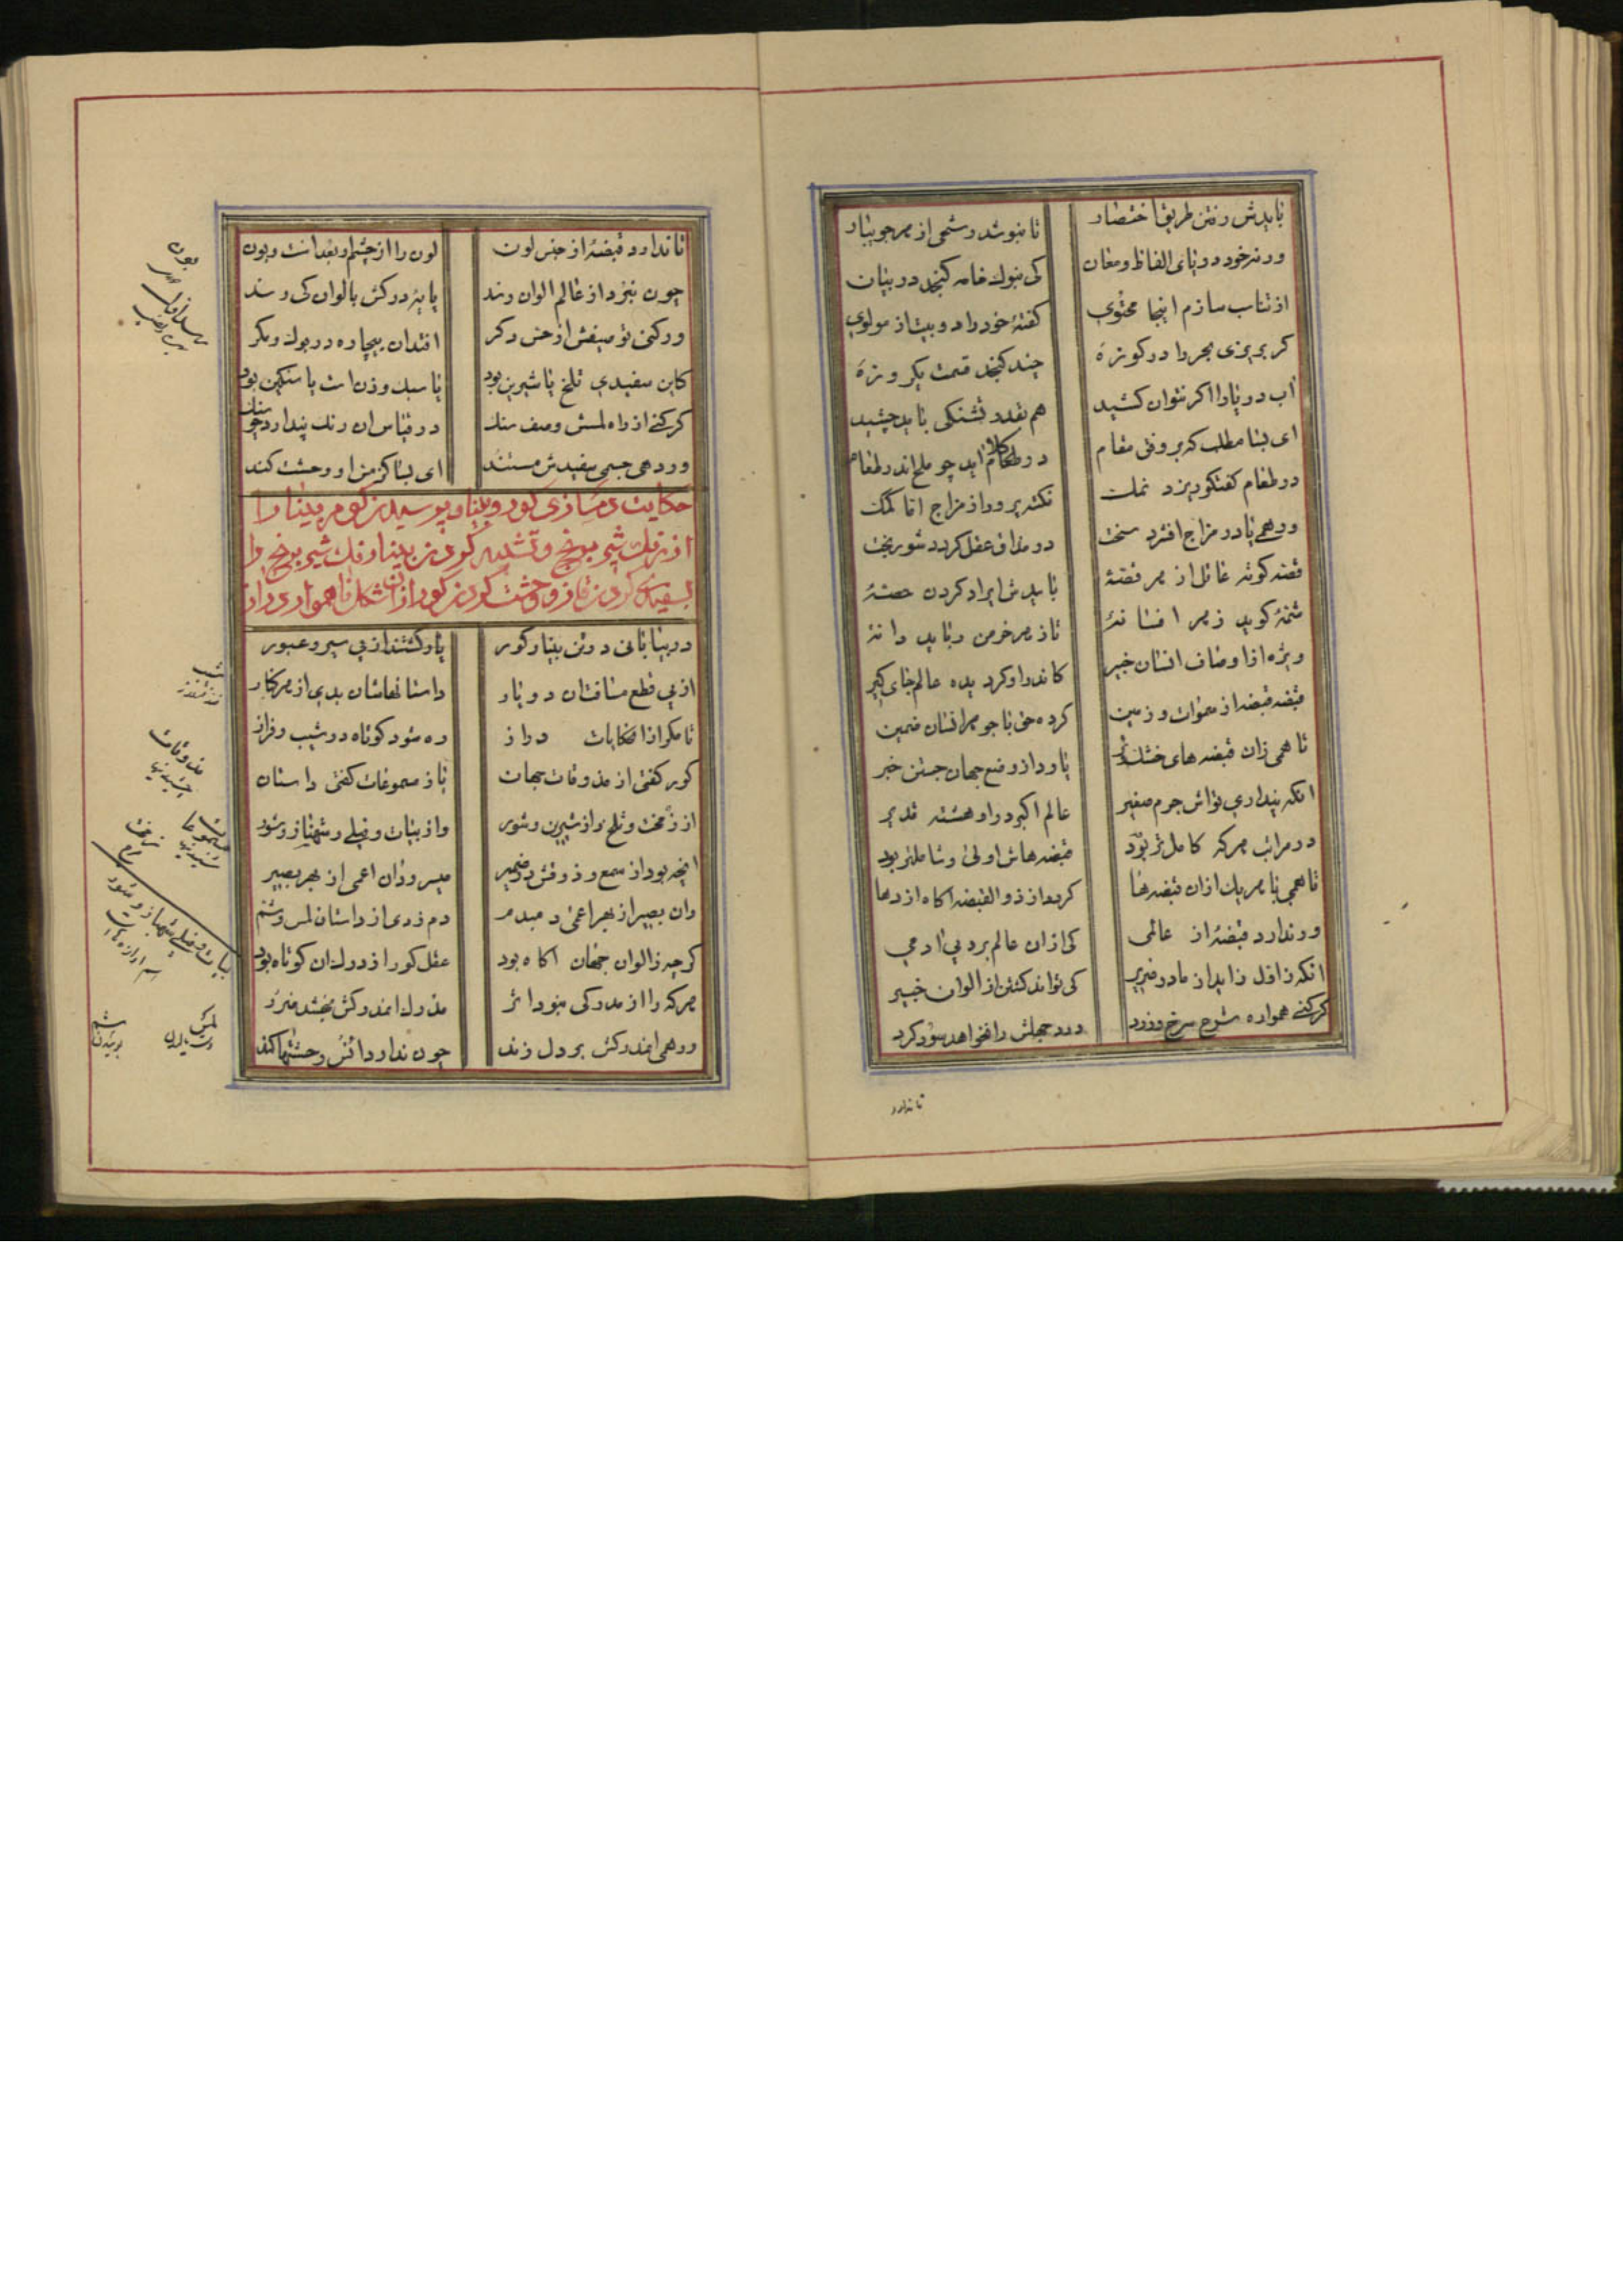 بایدش رفتن طریق اختصار تا بنوشد رشحی از هر جویبار
ور نه خود دریای الفاظ و معان کی بنوک خامه کنجد در بیان
از تناسب سازم اینجا محتوی کفتهٔ خود را دو بیت از مولوی
کر بریزی بحر را در کوزهٔ چند کنجد قسمت یکروزهٔ
آب دریا را اکر نتوان کشید هم بقدر تشنکی باید چشید
ای بسا مطلب که بر وفق مقام در کلام آید چو ملح اندر طعام
در طعام کفتکو ریزد نمک نکته پرور از مزاج اما کمک
ور دهی با در مزاج افزد سخت در مذاق عقل کردد شوربخت
قصه کوته عاقل از هر قصهٔ بایدش ایراد کردن حصهٔ
شمهٔ کوید ز هر افسانهٔ تا ز هر خرمن رباید دانهٔ
ویژه از اوصاف انسان خبیر کاندر او کرد یده عالم جای کیر
قبضه قبضه از سموات و زمین کرده حق با جوهر انسان ضمین
تا همی زان قبضه های خشک و تر یابد از وضع جهان جستن خبر
انکه پنداری تواش جرم صغیر عالم اکبر در او هشته قدیر
در مراتب هرکه کامل تر بود قبضه هاش اولی و شاملتر بود
تا همی با هر یک از ان قبضه ها کردد از ذو القبضه اکاه از دها
ور ندارد قبضهٔ از عالمی کی از ان عالم برد پی ادمی
انکه ز اول زاید از مادر ضریر کی تواند کشتن از الوان خبیر
کر کنی همواره شرح سرخ و زرد درد جهلش را نخواهد سود کرد
تا ندارد
تا ندارد قبضهٔ از جنس لون لون را از چشم او بعد است و بون
چون نبزد از عالم الوان رسد پایهٔ درکش بالوان کی رسد
ور کنی توصیفش از جنس دکر افتد ان بیچاره در بوک و مکر
کاین سفیدی تلخ یا شیرین بود یا سبک وزن است یا سنکین بود
کر کنی از راه لمسش وصف سنک در قیاس ان رنک پندارد چو سنک
ور دهی جسمی سفیدش مستند ای بسا کز من او وحشت کند
حکایت دمسازی کور و بینا و پرسیدن کور مر بینا را
از رنک شیر برنج و تشبیه کردن بینا رنک شیر برنج را
بسفیدی کردن قاز و وحشت کردن کور از ان شکل ناهمواری دراز
در بیابانی دو تن بینا و کور یار کشتند از پی سیر و عبور
از پی قطع مسافت ان دو یار داستانهاشان بدی از هر کنار
تا مکر از ان حکایات دراز ره شود کوتاه در شیب و فراز
کور کفتی از مذوقات جهان باز مسموعات کفتی داستان
از زمخت و تلخ و از شیرین و شور واز بیات و نیلی و شهناز و شور
انچه بود از سمع و ذوقش در ضمیر میسرود ان اعمی از بهر بصیر
وان بصیر از بهر اعمی دمبدم دم زدی از داستان لمس و شم
کر چه ز الوان جهان اکاه بود عقل کور از درک ان کوتاه بود
هرکه را از مدرکی نبود اثر مدرک اندرکش نبخشد ضرر
ور همی اندرکش بر دل زند چون ندارد دانش وحشتها کند
مذوقات
چشیدنی
مسموعات
شنیدنی
زمخت
بیات و نیلی و شهناز و شور
اسم اوازه است
لمس
دست مالیدن
شم
بوئیدن